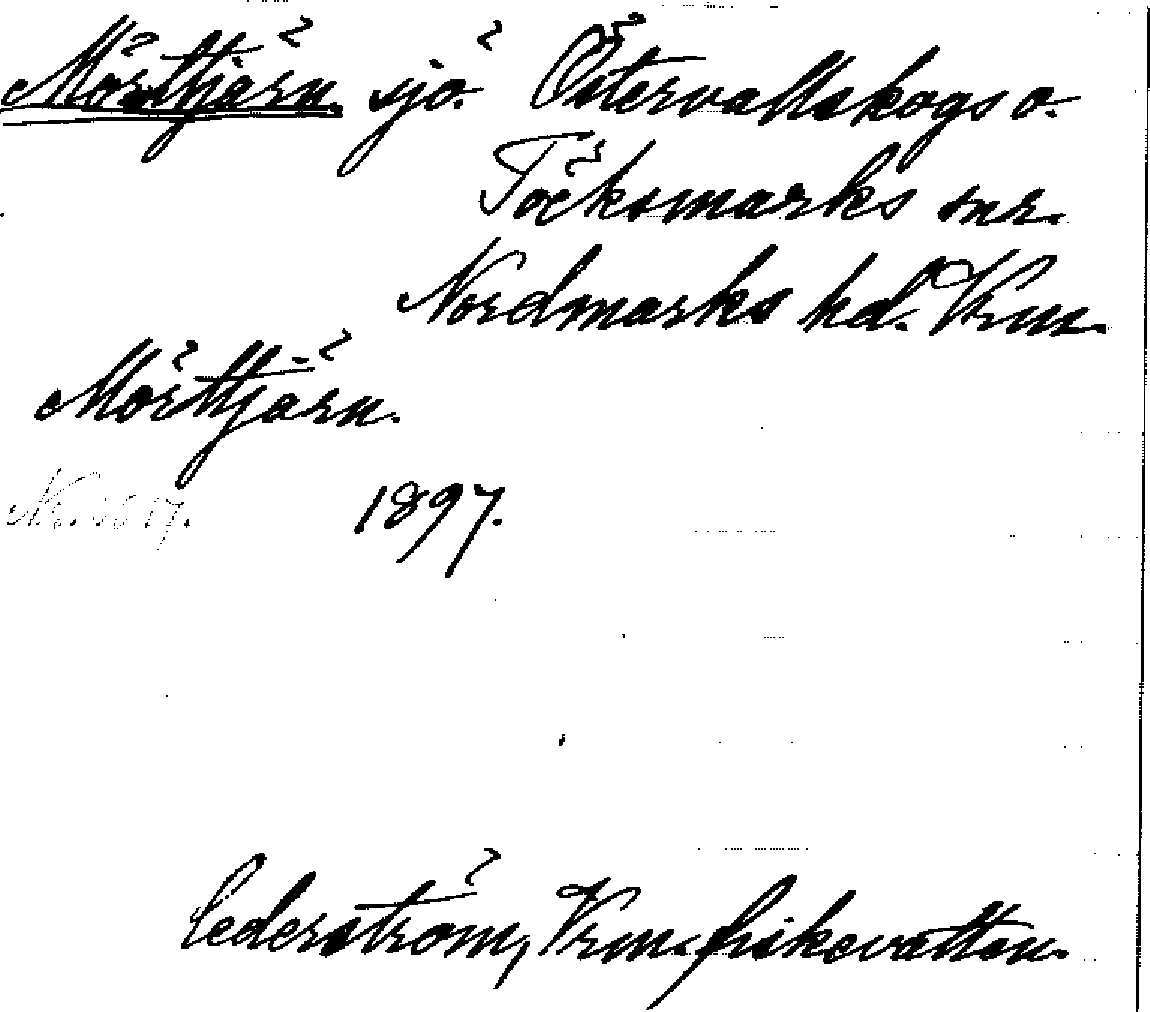 Mörttjärn. sjö. Östervallskogs o.
Töcksmarks snr.
Nordmarks hd. Vrm.
Mörttjärn.
1897.
Cederström, Vrm. fiskevatten.